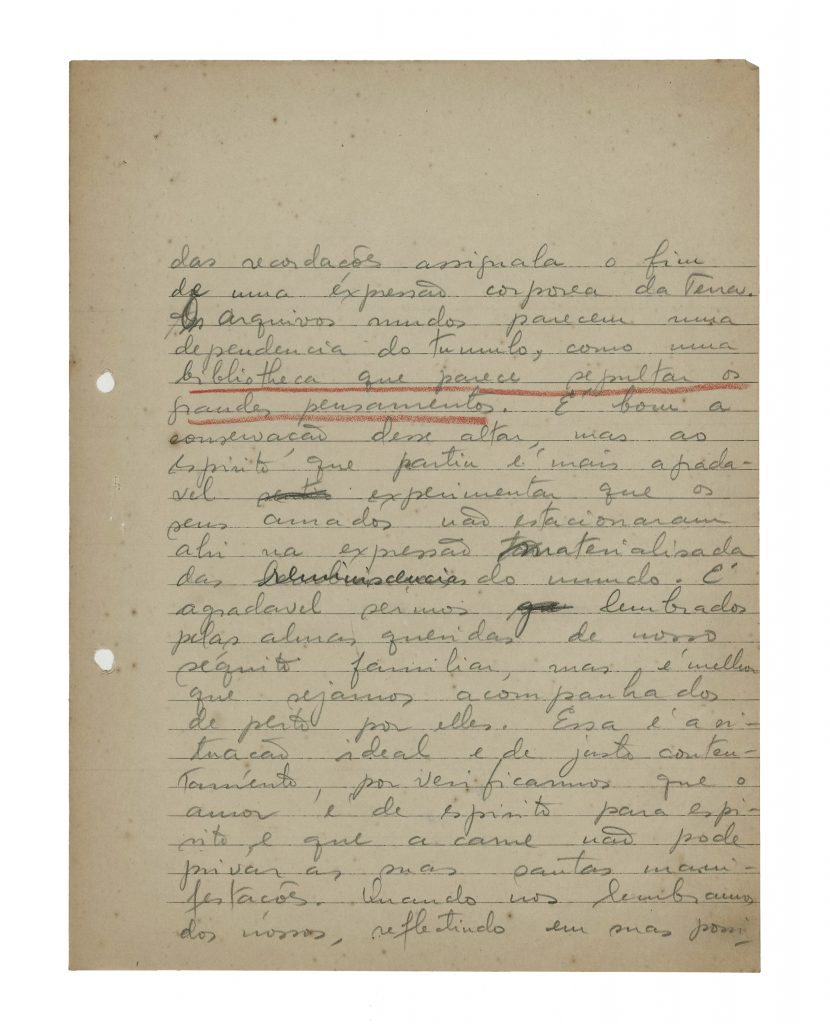 das recordações assignala o fim
de uma expressão corporea da Terra.
Os Arquivos mudos parecem uma
dependencia do tumulo, como uma
bibliotheca que parece sepultar os
grandes pensamentos. É bom a
conservação desse altar, mas ao
espirito que partiu é mais agrada-
vel experimentar que os
seus amados não estacionaram
ahi na expressão materialisada
das reminiscencias do mundo. É
agradavel sermos lembrados
pelas almas queridas de nosso
sequito familiar, mas é melhor
que sejamos acompanhados
de perto por elles. Essa é a si-
tuação ideal e de justo conten-
tamento, por verificarmos que o
amor é de espirito para espi-
rito, e que a carne não pode
privar as suas santas mani-
festações. Quando nos lembramos
dos nossos, reflectindo em suas possi-